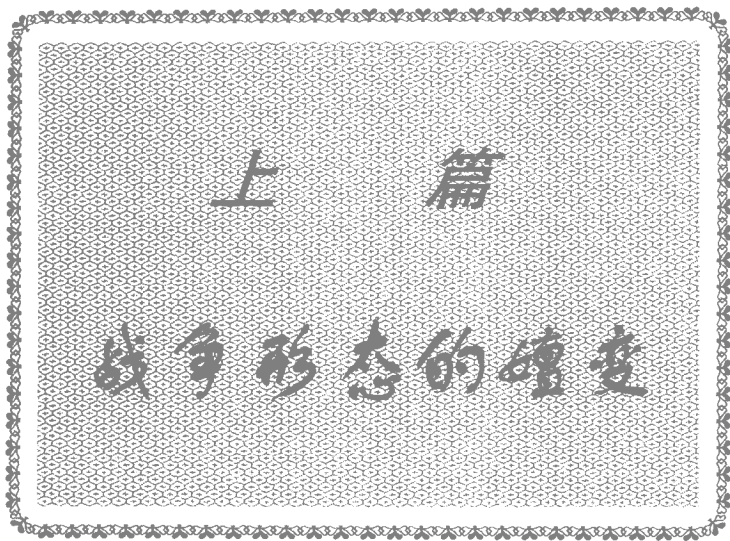 上 篇
战争形态的嬗变